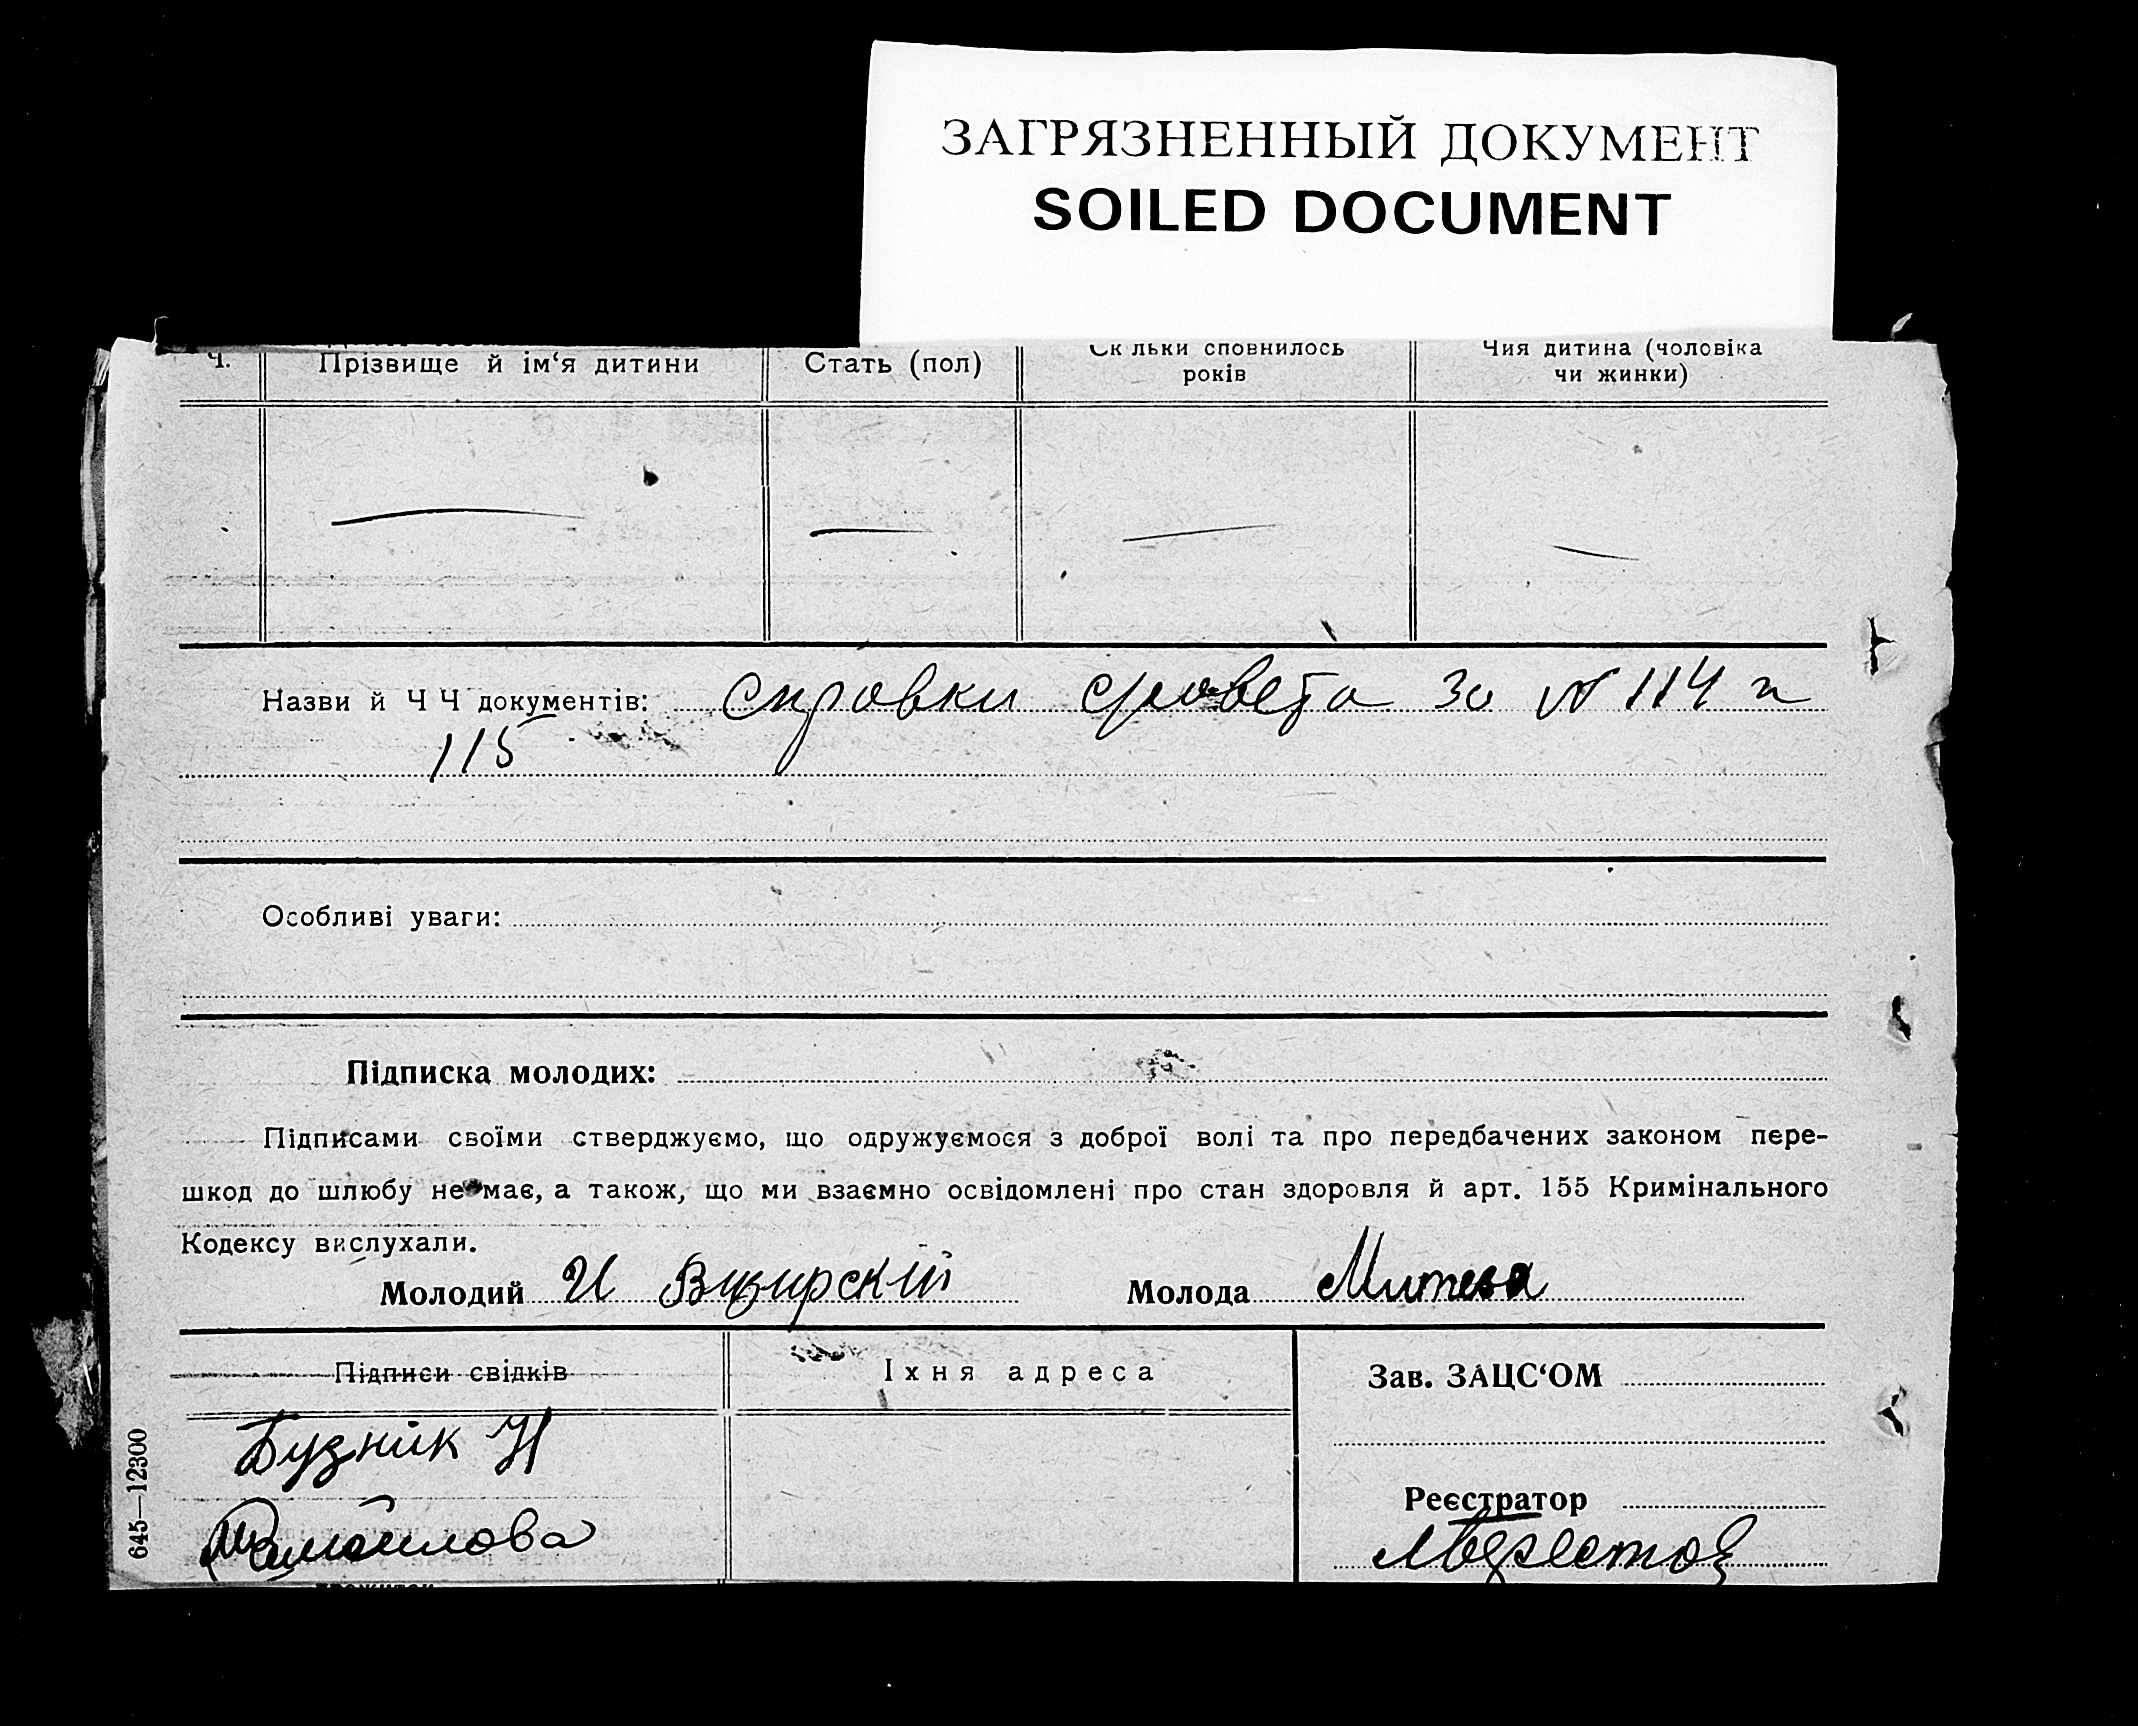 ЗАГРЯЗНЕННЫЙ ДОКУМЕНТ
SOILED DOCUMENT
Ч. Прізвище й ім‘я дитини Стать (пол) Скільки сповнилось років Чия дитина (чоловіка чи жинки)
Назви й Ч Ч документів: справки с/совета за № 114 и
115
Особливі уваги:
Підписка молодих:
Підписами своїми стверджуємо, що одружуємося з доброї волі та про передбачених законом пере-
шкод до шлюбу не має, а також, що ми взаємно освідомлені про стан здоровля й арт. 155 Кримінального
Кодексу вислухали.
Молодий И Визирский Молода
Підписи свідків Їхня адреса Зав. ЗАЦС‘ОМ
Бузник Н
Реєстратор
Самойлова
645—12300